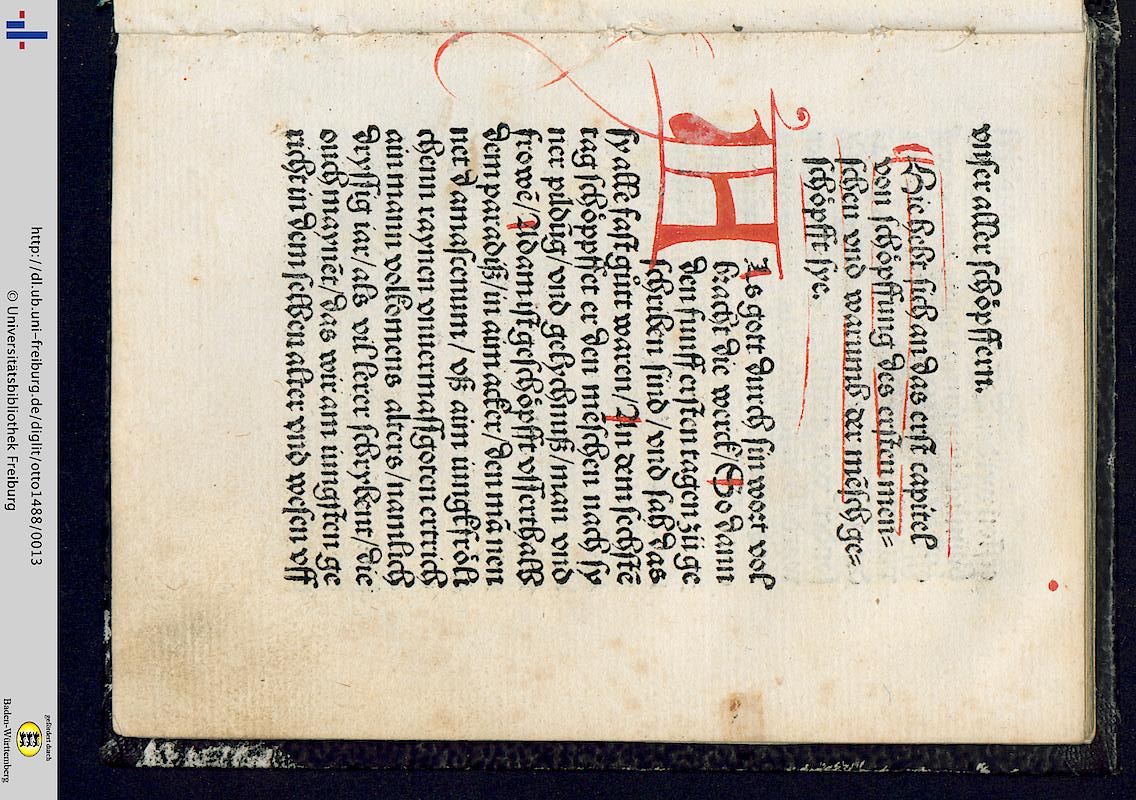 vnser aller schöpffern.
Hie hebt sich an das erst capitel
von schöpffung des ersten men=
schen vnd warumb der mēsch ge=
schöpfft sye.
Als gott durch sin wort vol
bracht die werck/ So dann
den fünff ersten tagen zů ge
schriben sind/ vnd sach das
sy alle fast gůtt waren/ An dem sechstē
tag schöppffet er den mēschen nach sy
ner pildūg/ vnd gelychnuß/ man vnd
frowē/ Adam ist geschöpfft vsserthalb
dem paradiß/ in aim acker/ den mā nen
net damascenum/ vß aim iungkfröli
chenn raynen vnuermassgoten ertrich
ain mann volkōmens alters/ namlich
dryssig iar/ als vil lerer schrybent/ die
ouch maynēt/ das wir am iungsten ge
richt in dem selben alter vnd wesen vff
http://dl.ub.uni-freiburg.de/diglit/otto1488/0013
© Universitätsbibliothek Freiburg
gefördert durch
Baden-Württemberg